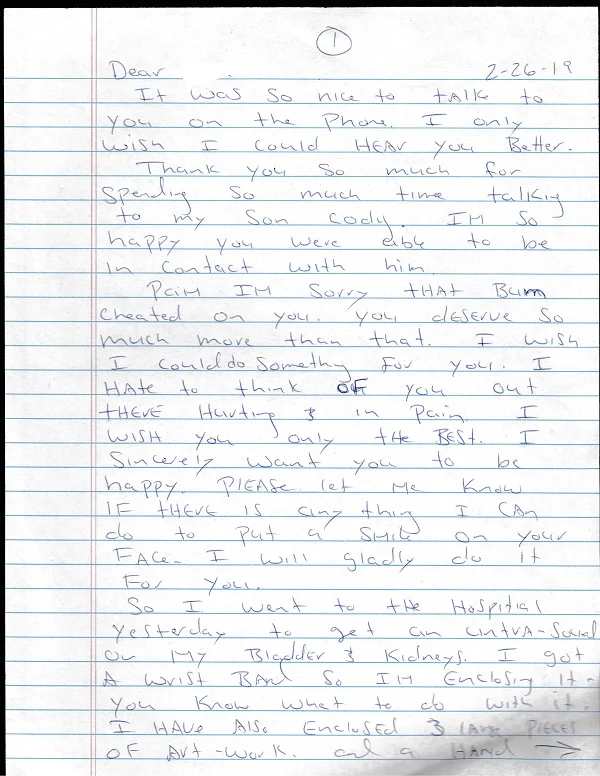 1
Dear . 2-26-19
It was so nice to tAlk to
you on the Phone. I only
wish I could HEAr you Better.
Thank you so much for
spending so much time talking
to my Son Cody. IM so
happy you were able to be
in contact with him.
PaiM IM Sorry tHAt Bum
cheated on you. you dESErve so
much more than that. I wish
I could do somethng For you. I
HAte to think OF you out
tHErE Hurting & in Pain. I
WISH you only tHE BEst. I
Sincerely want you to be
happy. PlEASE let Me Know
IF tHErE IS any thing I CAN
do to put a SMilE on your
FACE. I will gladly do it
For you.
So I went to tHE HospitIal
yesterday to get an untrA-Sound
on My Bladder & Kidneys. I got
A wrist BAnd So IM Enclosing it-
you Know what to do with it.
I HAVE Also Enclosed 3 PIECES
OF Art-work. and a HAND →